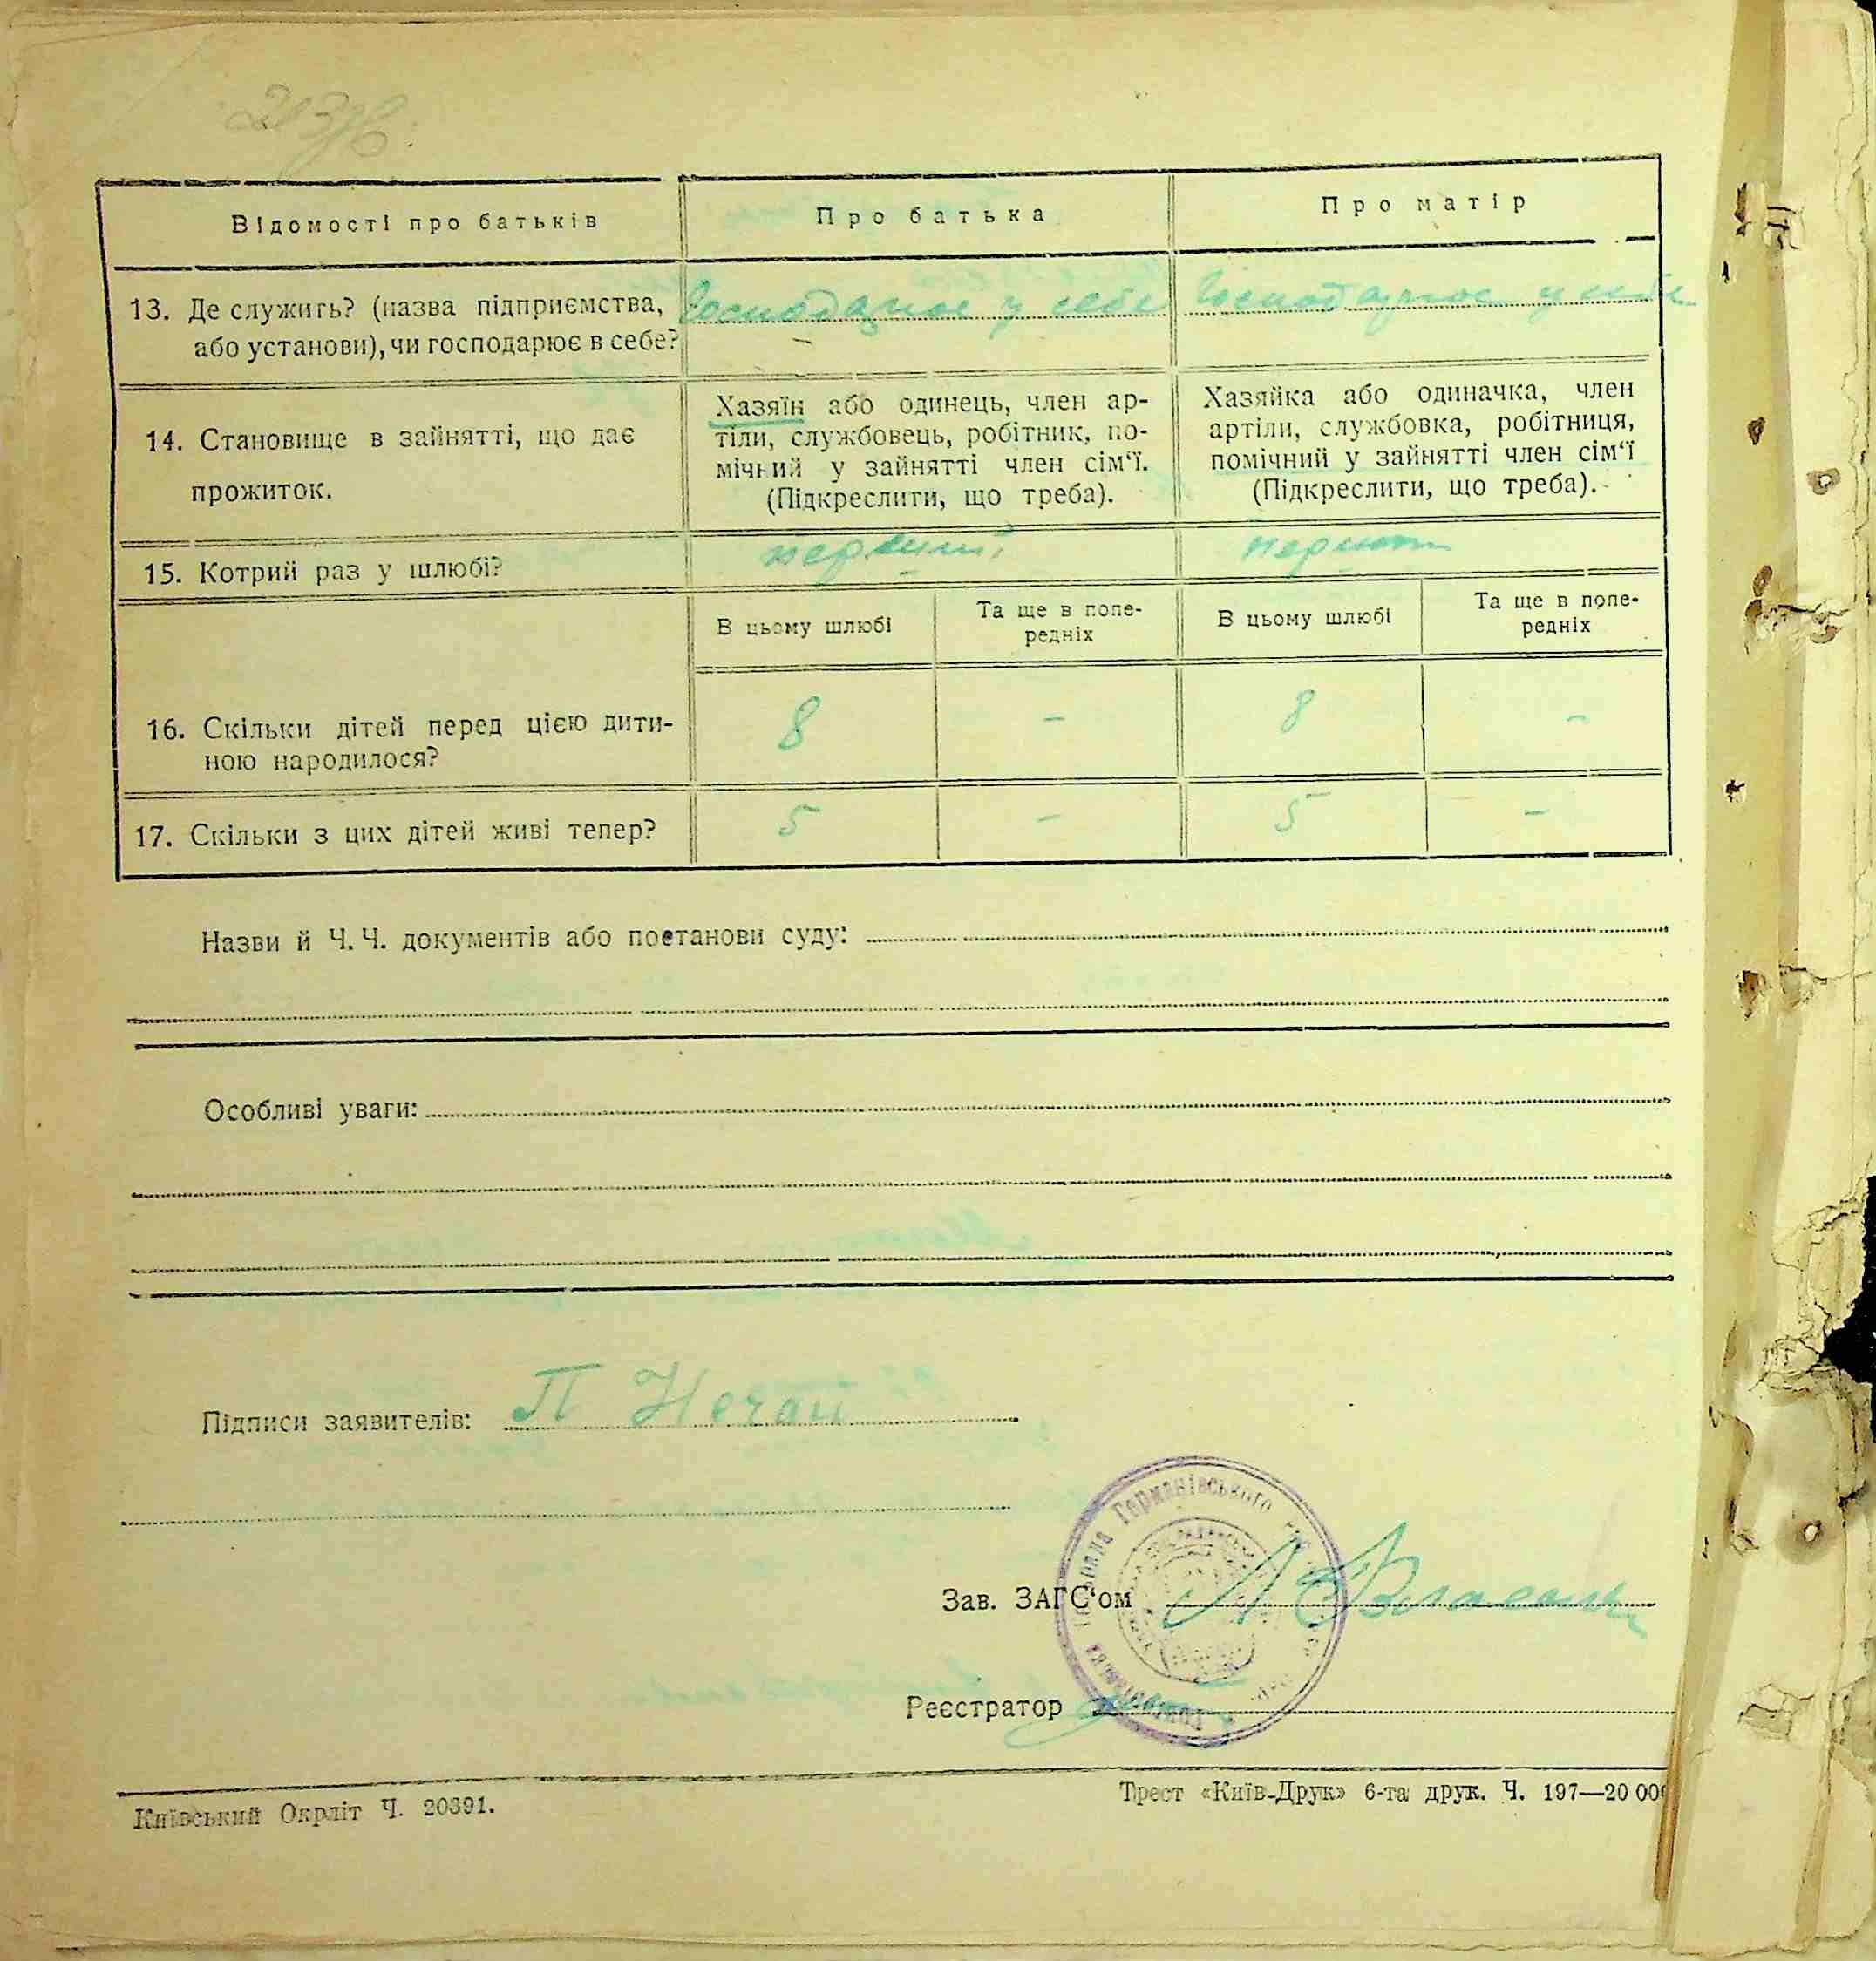 Відомості про батьків
Про батька
Про матір
13. Де служить? (назва підприємства,
або установи), чи господарює в себе?
Господарює у себе
Господарює у себе
14. Становище в зайнятті, що дає
прожиток.
Хазяїн або одинець, член ар-
тіли, службовець, робітник, по-
мічний у зайнятті член сім'ї.
(Підкреслити, що треба).
Хазяйка або одиначка, член
артіли, службовка, робітниця,
помічний у зайнятті член сім'ї
(Підкреслити, що треба).
15. Котрий раз у шлюбі?
первий
В цьому шлюбі
Та ще в попе-
редніх
В цьому шлюбі
Та ще в попе-
редніх
16. Скільки дітей перед цією дити-
ною народилося?
8
-
8
-
17. Скільки з цих дітей живі тепер?
5
-
5
-
Назви й Ч. Ч. документів або постанови суду:
Особливі уваги:
Підписи заявителів:
П Нечай
Германівського
Зав. ЗАГС'ом
Реєстратор
Київський Окрліт Ч. 20391.
Трест «Київ-Друк» 6-та друк. Ч. 197—20 000